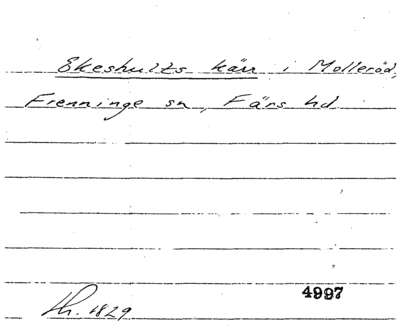 Ekeshults kärr i Molleröd,
Frenninge sn, Färs hd
4997
Lh. 1829